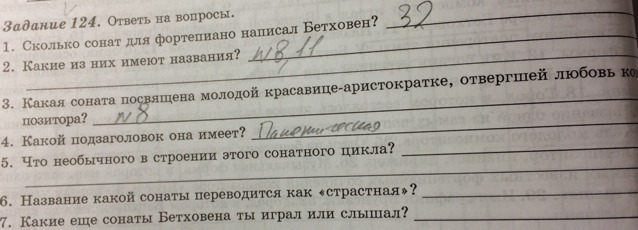 Задание 124. Ответь на вопросы.
1. Сколько сонат для фортепиано написал Бетховен? 32
2. Какие из них имеют названия? №8, 11
3. Какая соната посвящена молодой красавице-аристократке, отвергшей любовь ко
позитора? №8
4. Какой подзаголовок она имеет? Патетическая
5. Что необычного в строении этого сонатного цикла?
6. Название какой сонаты переводится как «страстная»?
7. Какие еще сонаты Бетховена ты играл или слышал?